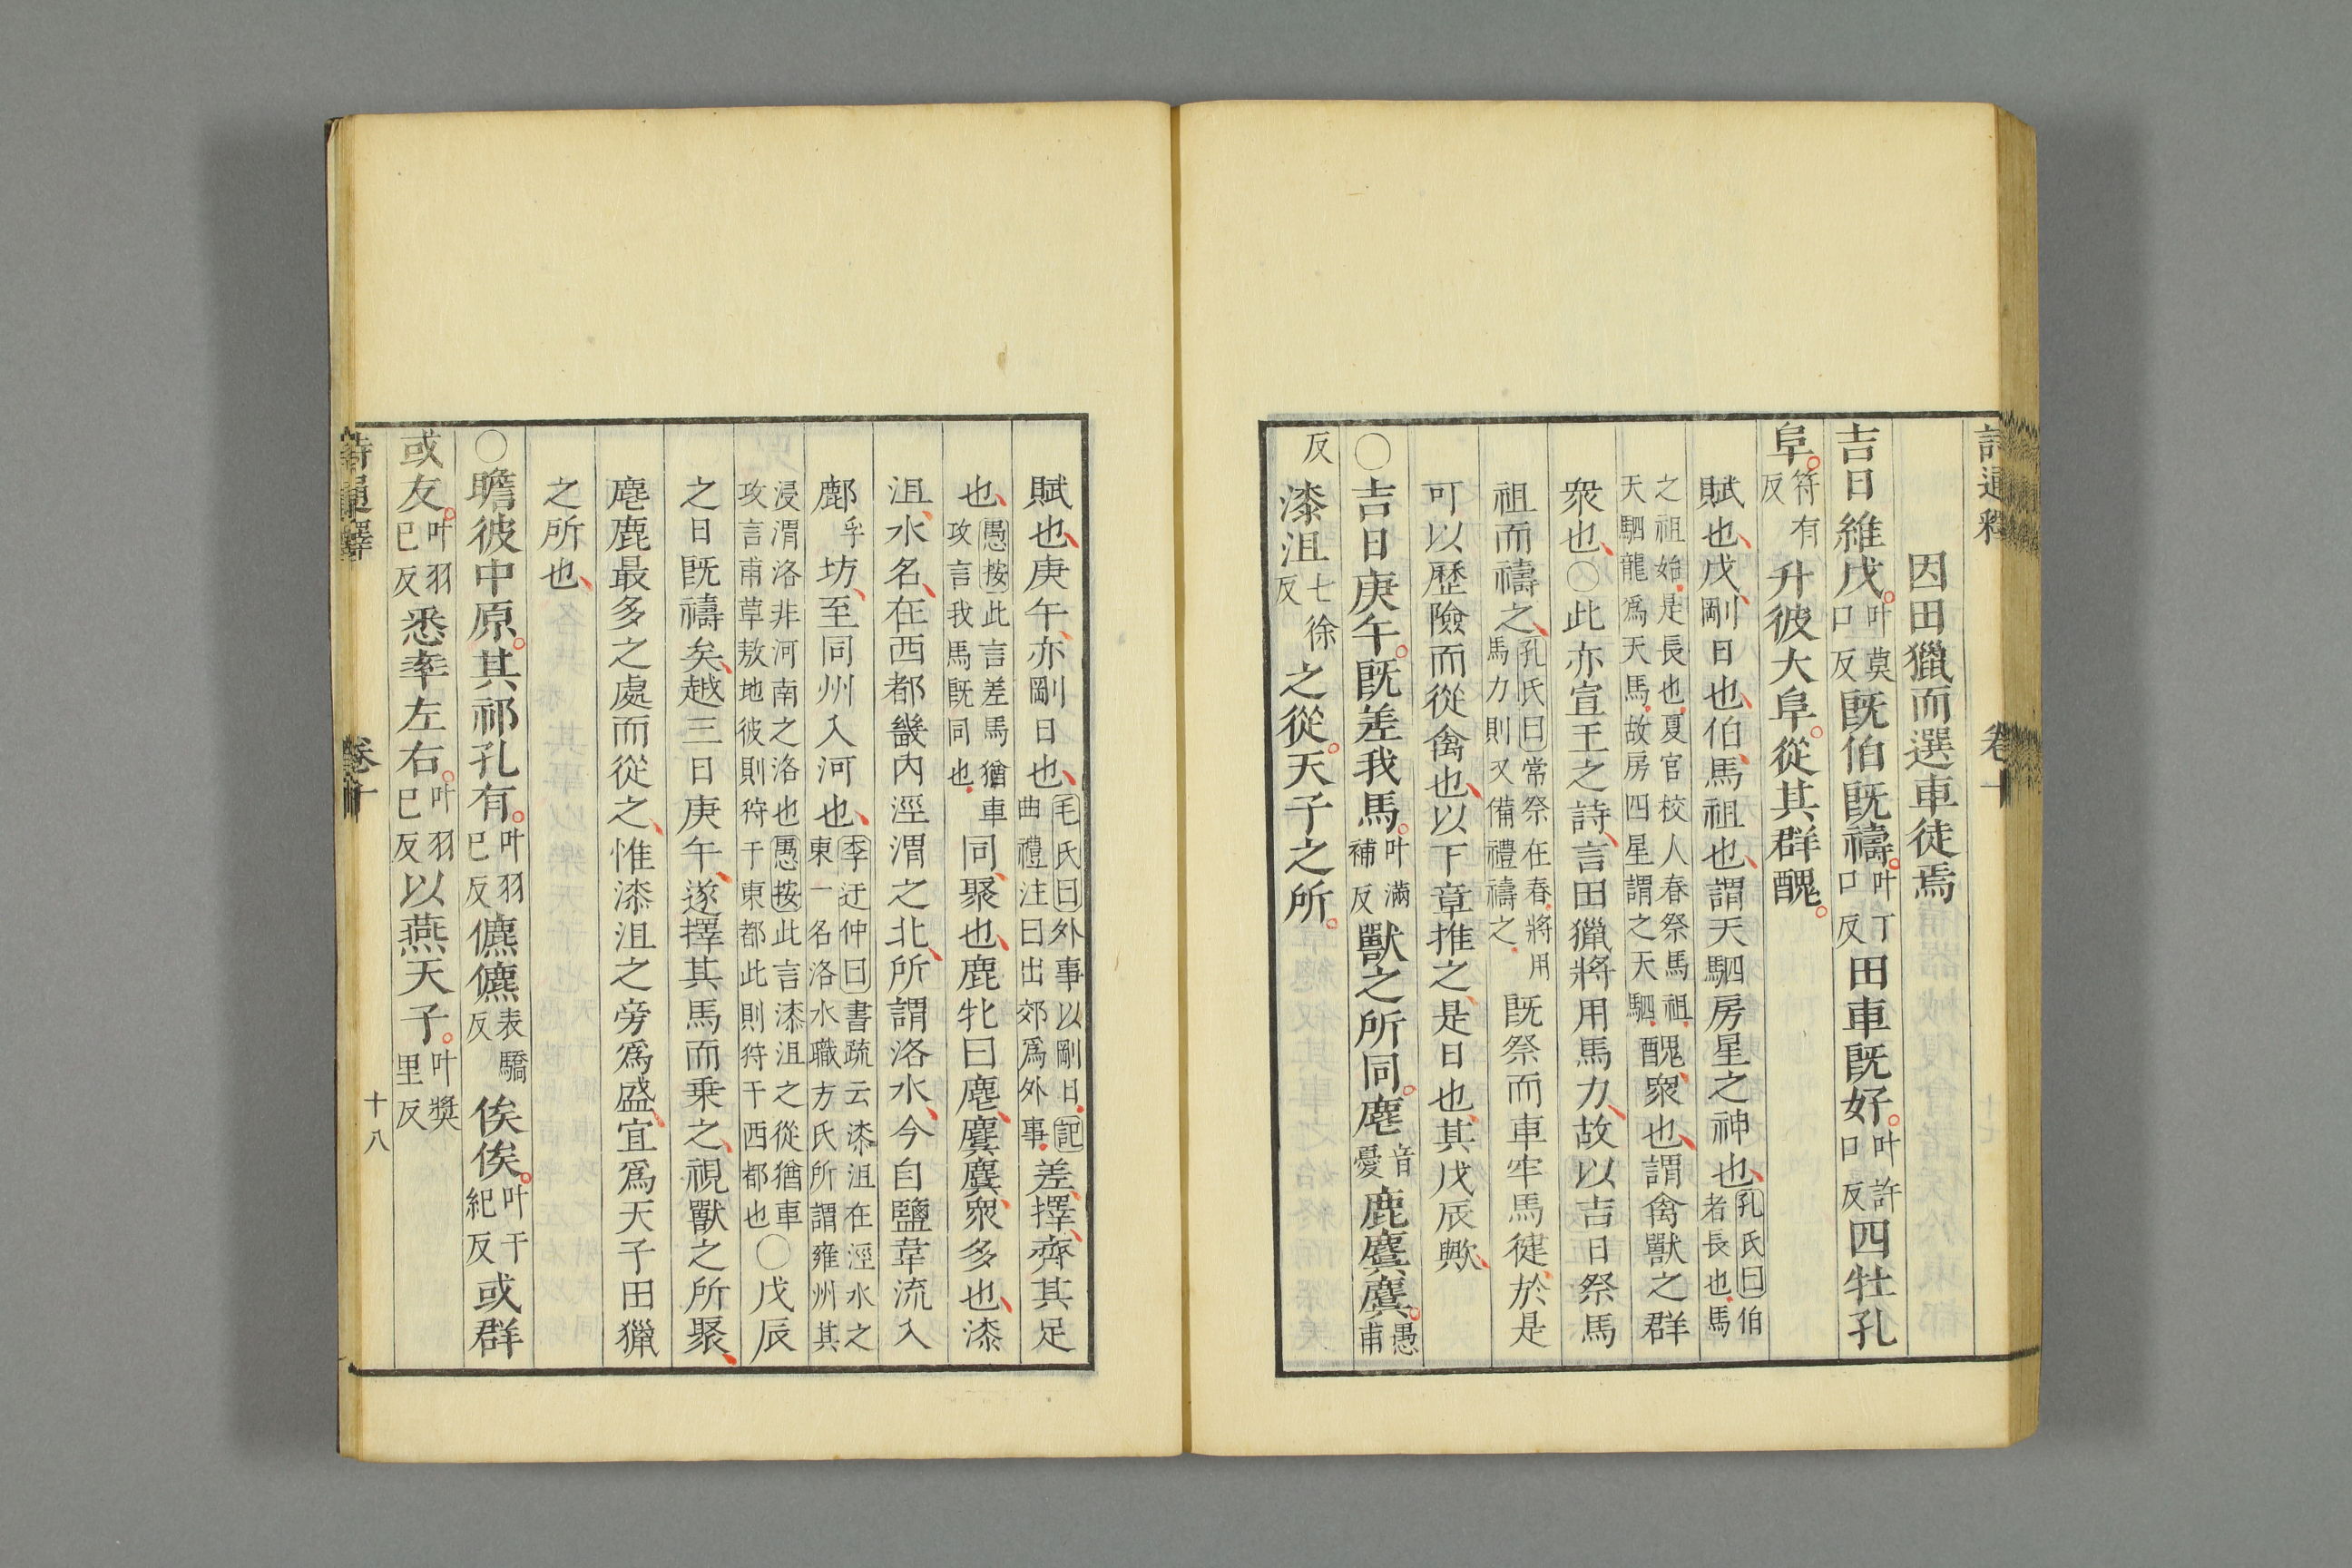 詩通釋 卷十
因田獵而選車徒焉
吉日維戊叶莫口反既伯既禱叶丁口反田車既好叶許口反四牡孔
阜符有反升彼大阜從其群醜
賦也戊剛日也伯馬祖也謂天駟房星之神也孔氏曰伯者長也馬
之祖始是長也夏官校人春祭馬祖天駟龍爲天馬故房四星謂之天駟醜衆也謂禽獸之群
衆也〇此亦宣王之詩言田獵將用馬力故以吉日祭馬
祖而禱之孔氏曰常祭在春將用馬力則又備禮禱之既祭而車牢馬健於是
可以歷險而從禽也以下章推之是日也其戊辰歟
〇吉日庚午既差我馬叶滿補反獸之所同麀音憂鹿麌麌愚甫
反漆沮七徐反之從天子之所
賦也庚午亦剛日也毛氏曰外事以剛日記曲禮注曰出郊爲外事差擇齊其足
也愚按此言差馬猶車攻言我馬既同也同聚也鹿牝曰麀麌麌衆多也漆
沮水名在西都畿內涇渭之北所謂洛水今自鹽韋流入
鄜孚坊至同州入河也李迂仲曰書疏云漆沮在涇水之東一名洛水職方氏所謂雍州其
浸渭洛非河南之洛也愚按此言漆沮之從猶車攻言甫草敖地彼則狩于東都此則狩于西都也〇戊辰
之日既禱矣越三日庚午遂擇其馬而乗之視獸之所聚
麀鹿最多之處而從之惟漆沮之旁爲盛宜爲天子田獵
之所也
〇瞻彼中原其祁孔有叶羽巳反儦儦表驕反俟俟叶于紀反或群
或友叶羽巳反悉率左右叶羽巳反以燕天子叶奬里反
詩通釋 卷十 十八